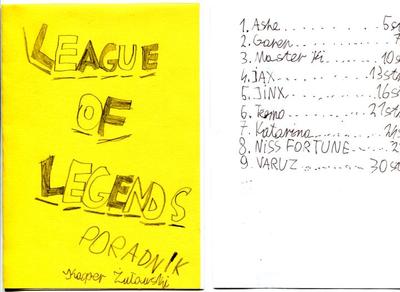 LEAGUE
OF
LEGENDS
PORADNIK
Kacper Żuławski
1. Ashe 5st
2. Garen 7
3. Master Yi 10s
4. JAX 13st
5. JINX 16st
6. Teemo 21st
7. Katarina
8. MISS FORTUNE
9. VARUZ 30st
...